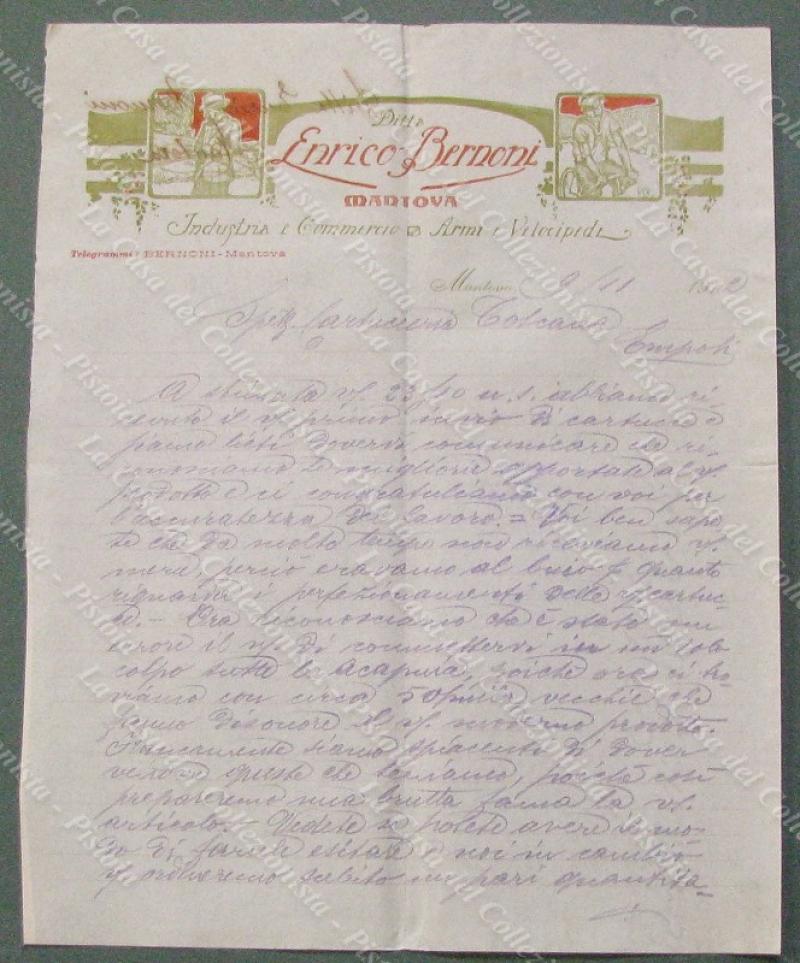 Ditta
Enrico Bernoni
MANTOVA
Industria e Commercio Armi e Velocipedi
Telegrammi: BERNONI-Mantova
Mantova, 9/11 1902
Spett. Cartucceria Toscana
Empoli
A stimata V/. 23/10 u.s. abbiamo ri-
cevuto il V/ primo invio di cartucce e
siamo lieti dovervi comunicare che ri-
conosciamo le migliorie apportate al V/.
prodotto e ci congratuliamo con voi per
l'accuratezza del lavoro. = Voi ben sape-
te che da molto tempo non riceviamo V/.
merce, perciò eravamo al buio quanto
riguarda i perfezionamenti delle V/ cartuc-
ce. - Ora riconosciamo che è stato un
errore il di commettervi in un solo
colpo tutte le Acapnia, poiché ora ci tro-
viamo con circa 50 mila vecchie che
fanno disonore al V/. moderno prodotto.
Sinceramente siamo spiacenti di dover
vendere queste che teniamo, poiché così
prepareremo una brutta fama la V/.
articolo. - Vedete se potete avere il mo-
do di farcele esitare e noi in cambio
V/ subito un pari quantità-
La Casa del Collezionista - Pistoia